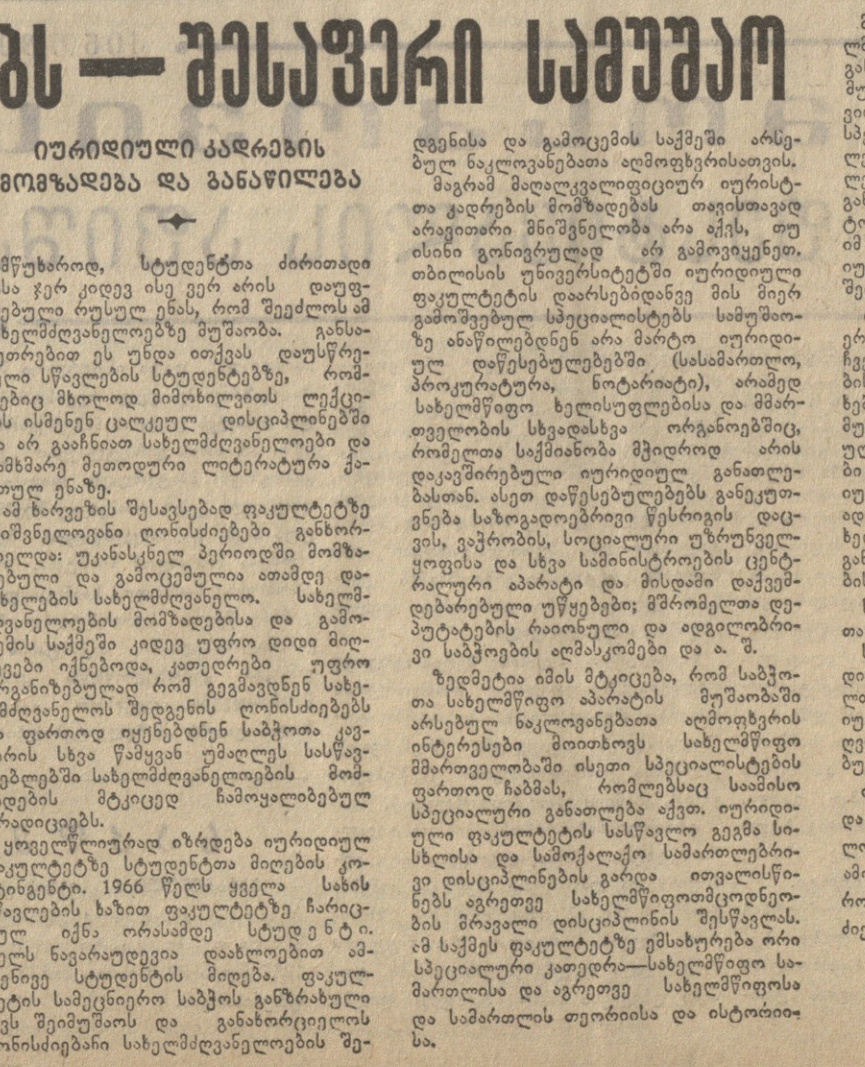 ბს — შესაფერი სამუშაო
იურიდიული კადრების
მომზადება და განაწილება
მწუხაროდ, სტუდენტთა ძირითადი
სა ჯერ კიდევ ისე ვერ არის დაუფ-
ებული რუსულ ენას, რომ შეეძლოს ამ
ხელმძღვანელოებზე მუშაობა. განსა-
ეთრებით ეს უნდა ითქვას დაუსწრე-
ლი სწავლების სტუდენტებზე, რომ-
ებიც მხოლოდ მიმოხილვითს ლექცი-
ს ისმენენ ცალკეულ დისციპლინებში
ა არ გააჩნიათ სახელმძღვანელოები და
ამხმარე მეთოდური ლიტერატურა ქა-
თულ ენაზე.
ამ ხარვეზის შესავსებად ფაკულტეტზე
იშვნელოვანი ღონისძიებები განხორ-
იელდა: უკანასკნელ პერიოდში მომზა-
ებული და გამოცემულია ათამდე და-
ხელების სახელმძღვანელო. სახელმ-
ღვანელოების მომზადებისა და გამო-
ემის საქმეში კიდევ უფრო დიდი მიღ-
ევები იქნებოდა, კათედრები უფრო
რგანიზებულად რომ გეგმავდნენ სახე-
მძღვანელოს შედგენის ღონისძიებებს
ა ფართოდ იყენებდნენ საბჭოთა კავ-
ირის სხვა წამყვან უმაღლეს სასწავ-
ებლებში სახელმძღვანელოების მომ-
ადების მტკიცედ ჩამოყალიბებულ
რადიციებს.
ყოველწლიურად იზრდება იურიდიულ
აკულტეტზე სტუდენტთა მიღების კო-
ტინგენტი. 1966 წელს ყველა სახის
წავლების ხაზით ფაკულტეტზე ჩარიც-
ულ იქნა ორასამდე სტუდენტი.
ელს ნავარაუდევია დაახლოებით ამ-
ენივე სტუდენტის მიღება. ფაკულ-
ეტის სამეცნიერო საბჭოს განზრახული
ვს შეიმუშაოს და განახორციელოს
ონისძიებანი სახელმძღვანელოების შე-
დგენისა და გამოცემის საქმეში არსე-
ბულ ნაკლოვანებათა აღმოფხვრისათვის.
მაგრამ მაღალკვალიფიციურ იურისტ-
თა კადრების მომზადებას თავისთავად
არავითარი მნიშვნელობა არა აქვს, თუ
ისინი გონივრულად არ გამოვიყენეთ.
თბილისის უნივერსიტეტში იურიდიული
ფაკულტეტის დაარსებიდანვე მის მიერ
გამოშვებულ სპეციალისტებს სამუშაო-
ზე ანაწილებდნენ არა მარტო იურიდი-
ულ დაწესებულებებში (სასამართლო,
პროკურატურა, ნოტარიატი), არამედ
სახელმწიფო ხელისუფლებისა და მმარ-
თველობის სხვადასხვა ორგანოებშიც,
რომელთა საქმიანობა მჭიდროდ არის
დაკავშირებული იურიდიულ განათლე-
ბასთან. ასეთ დაწესებულებებს განეკუთ-
ვნება საზოგადოებრივი წესრიგის დაც-
ვის, ვაჭრობის, სოციალური უზრუნველ-
ყოფისა და სხვა სამინისტროების ცენტ-
რალური აპარატი და მისდამი დაქვემ-
დებარებული უწყებები; მშრომელთა დე-
პუტატების რაიონული და ადგილობრი-
ვი საბჭოების აღმასკომები და ა. შ.
ზედმეტია იმის მტკიცება, რომ საბჭო-
თა სახელმწიფო აპარატის მუშაობაში
არსებულ ნაკლოვანებათა აღმოფხვრის
ინტერესები მოითხოვს სახელმწიფო
მმართველობაში ისეთი სპეციალისტების
ფართოდ ჩაბმას, რომლებსაც საამისო
სპეციალური განათლება აქვთ. იურიდი-
ული ფაკულტეტის სასწავლო გეგმა სი-
სხლისა და სამოქალაქო სამართლებრი-
ვი დისციპლინების გარდა ითვალისწი-
ნებს აგრეთვე სახელმწიფოთმცოდნეო-
ბის მრავალი დისციპლინის შესწავლას.
ამ საქმეს ფაკულტეტზე ემსახურება ორი
სპეციალური კათედრა—სახელმწიფო სა-
მართლისა და აგრეთვე სახელმწიფოსა
და სამართლის თეორიისა და ისტორიი-
სა.